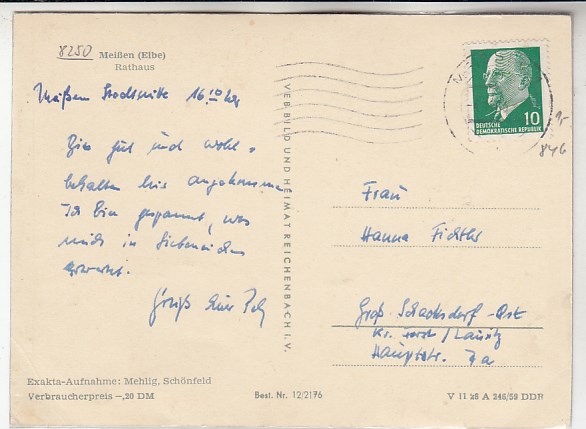 8250 Meißen (Elbe)
Rathaus
Meißen Stadtmitte 16 10 Uhr
Bin gut und wohl-
behalten hier angekommen
Ich bin gespannt, was
mich in Siebeneichen
erwartet.
Gruß Eure
VEB BILD UND HEIMAT REICHENBACH I. V.
10
DEUTSCHE
DEMOKRATISCHE REPUBLIK
846
Frau
Hanna
Groß Schacksdorf-Ost
Kr. Forst/Lausitz
Hauptstr. 7a
Exakta-Aufnahme: Mehlig, Schönfeld
Verbraucherpreis -,20 DM
Best. Nr. 12/2176
V 11 28 A 246/59 DDR